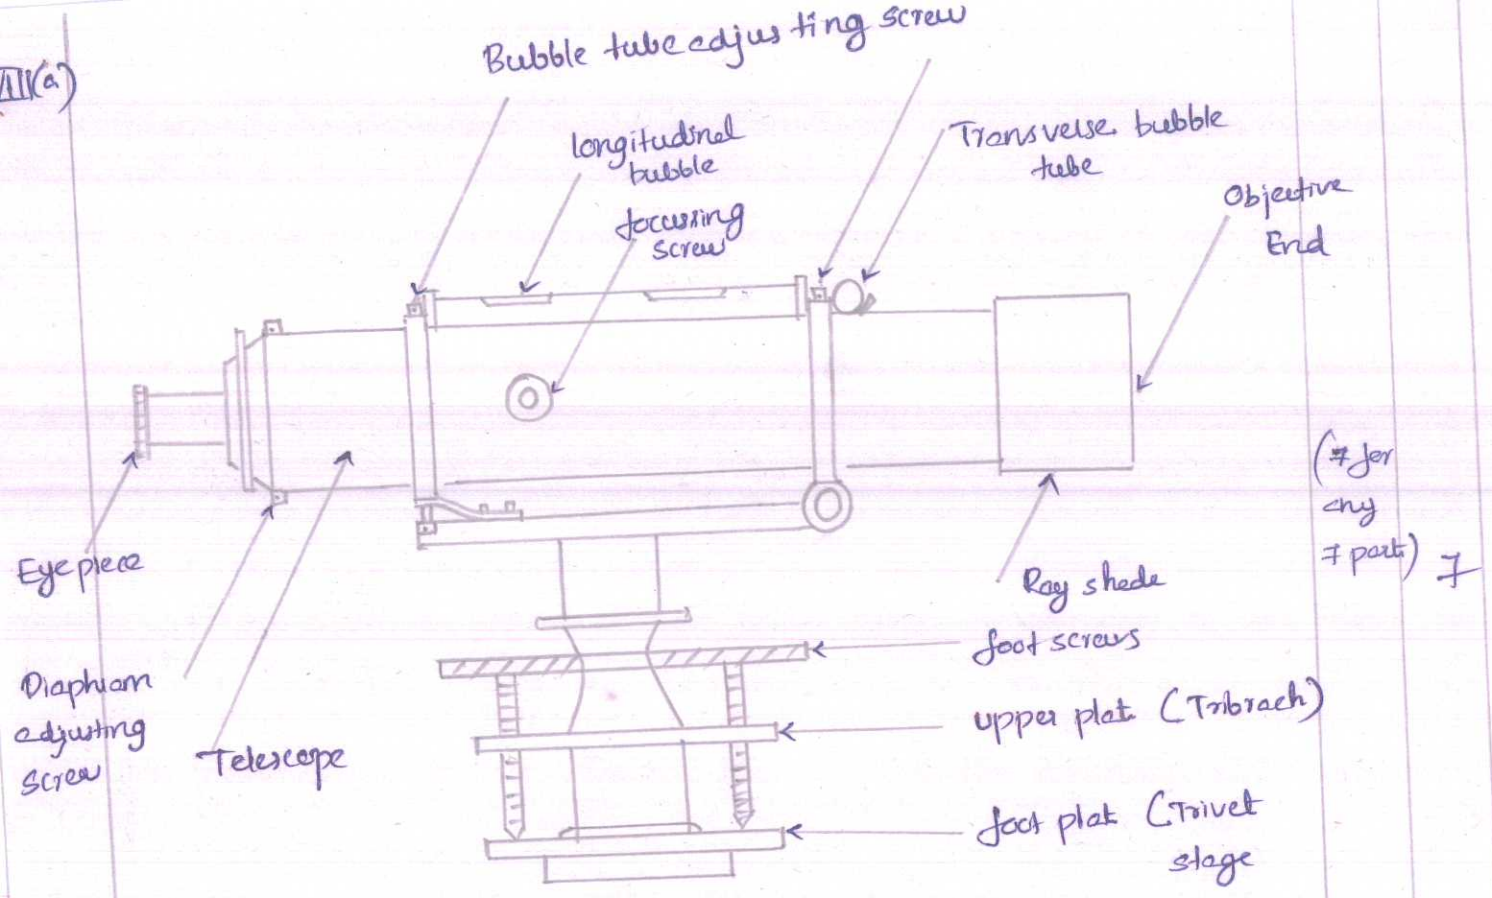 III(a)
Bubble tube adjusting screw
longitudinal
bubble
focussing
screw
Transverse bubble
tube
Objective
End
(7 for
any
7 part) 7
Eye piece
Ray shade
foot screws
Diaphram
adjusting
screw
Telescope
upper plat (Tribrach)
foot plat (Trivet
stage